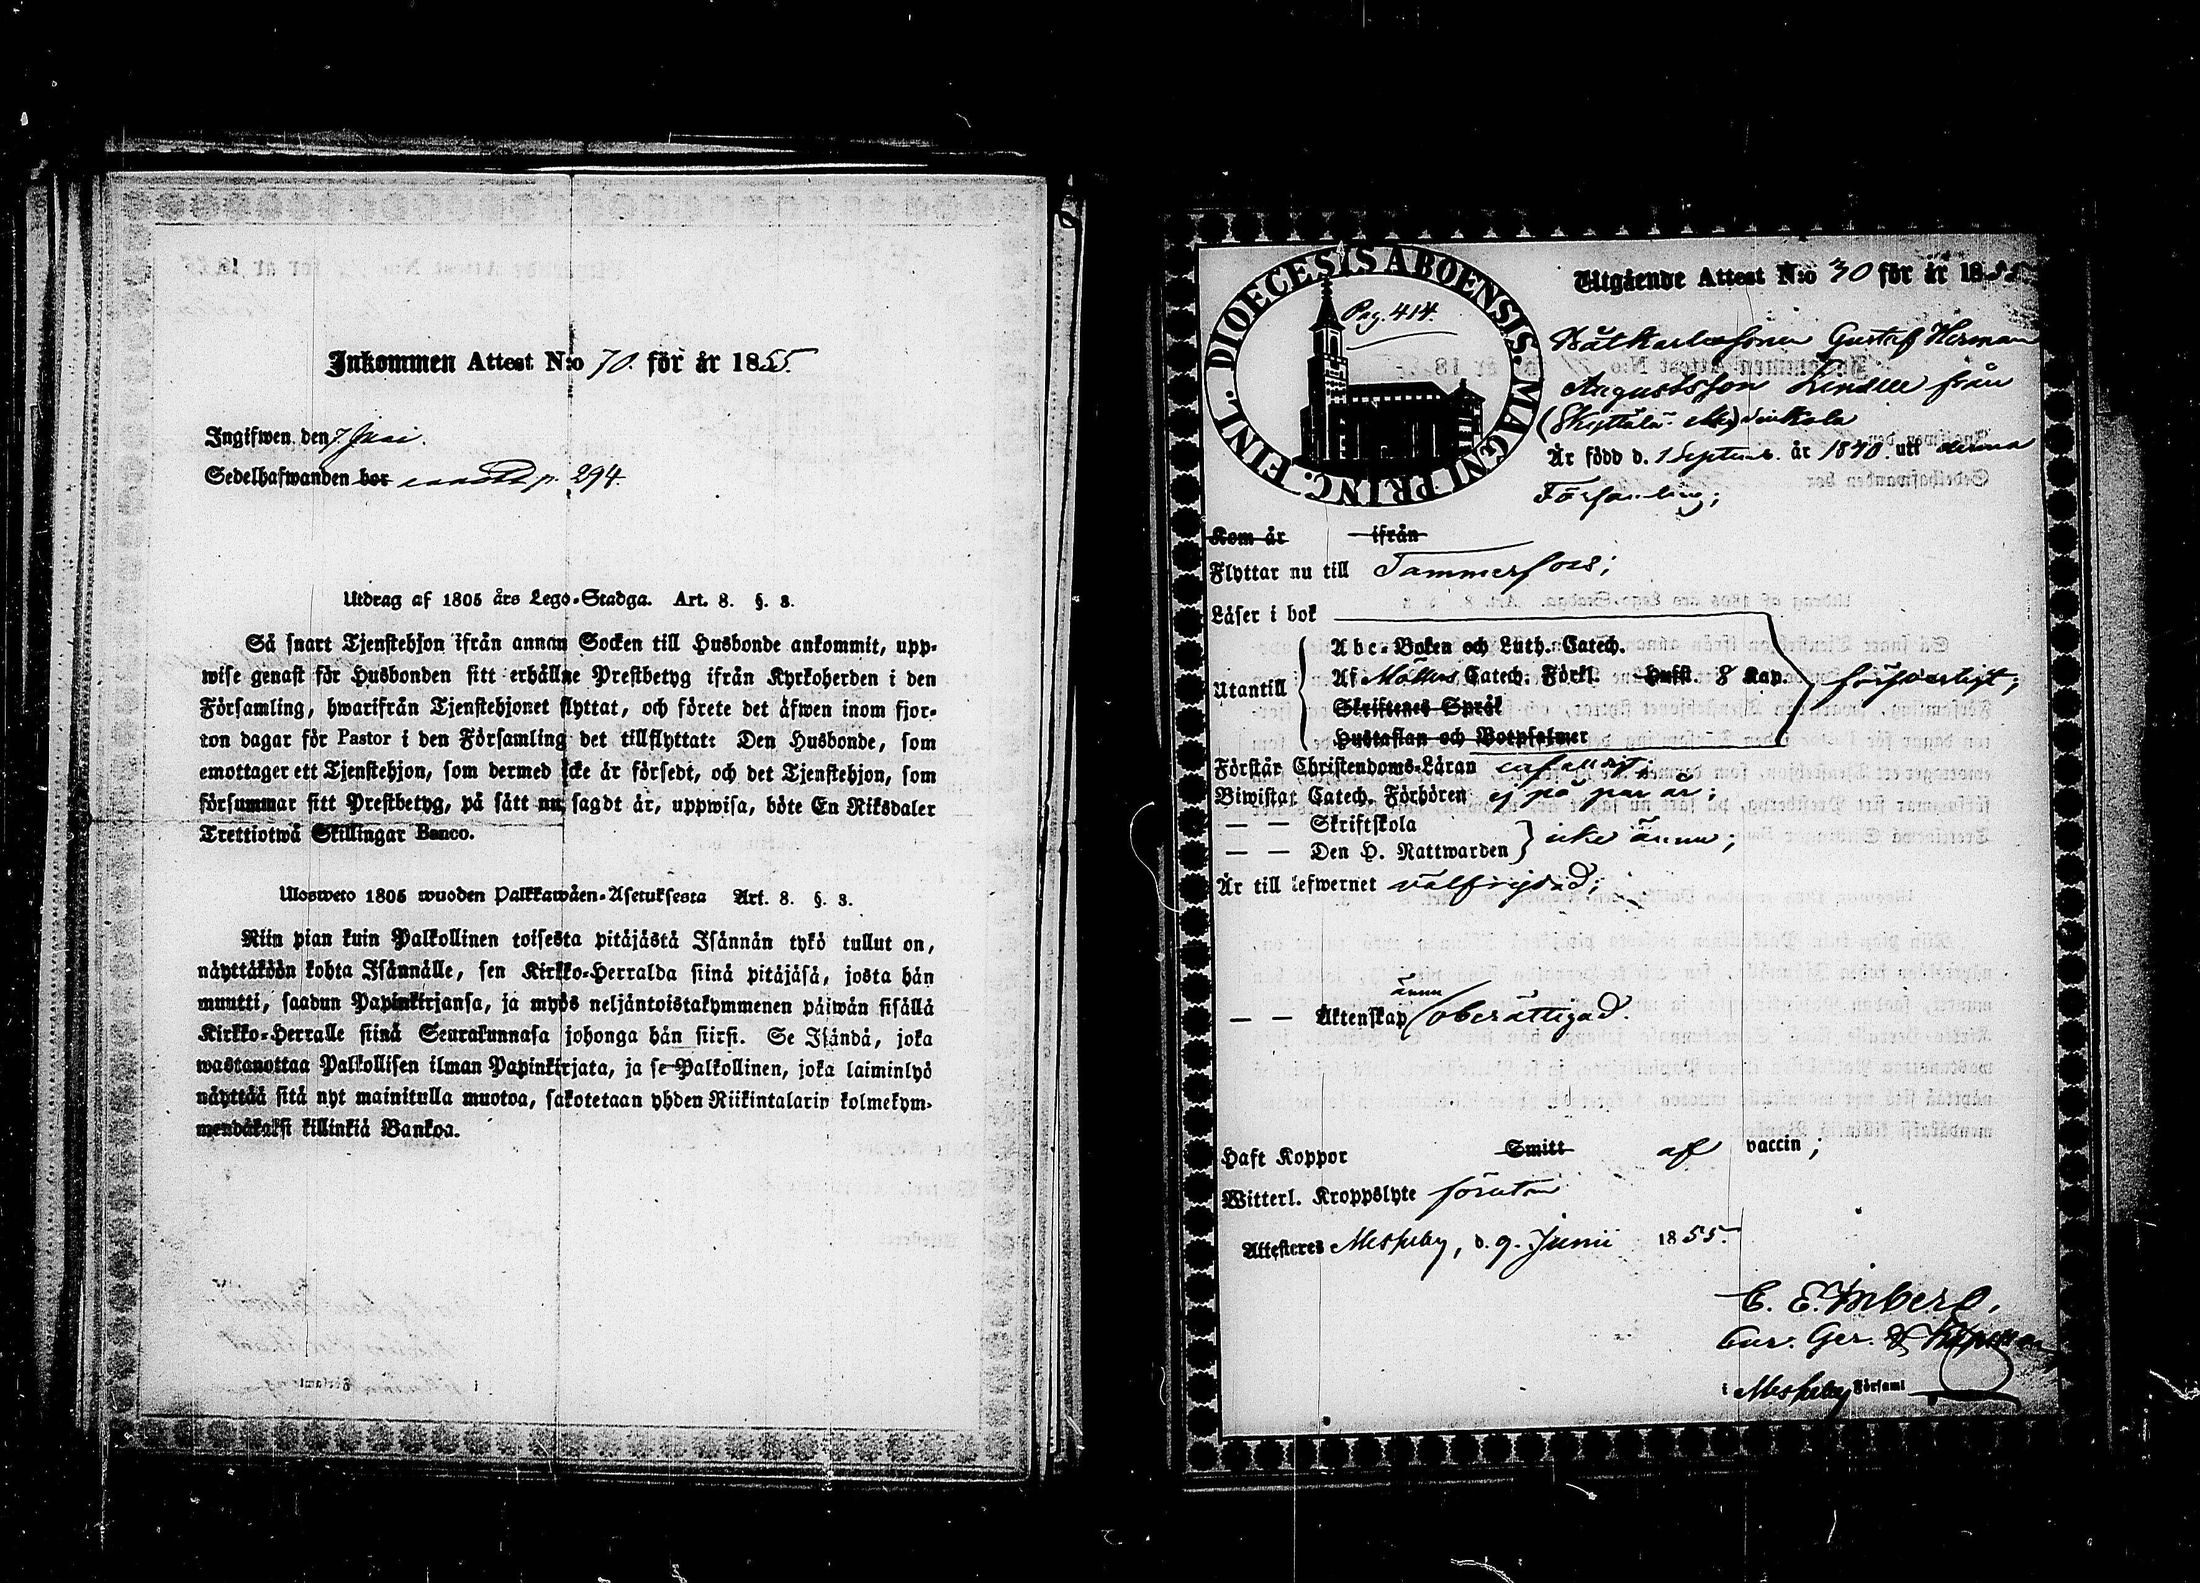 Inkommen Attest N:o 70. för år 1855.
Ingifwen den 7 Juni.
Sedelhafwanden bor p. 294.
Utdrag af 1805 års Lego-Stadga. Art. 8. §. 3.
Så snart Tjenstehjon ifrån annan Socken till Husbonde ankommit, upp-
wise genast för Husbonden sitt erhållne Prestbetyg ifrån Kyrkoherden i den
Församling, hwarifrån Tjenstehjonet flyttat, och förete det äfwen inom fjor-
ton dagar för Pastor i den Församling det tillflyttat: Den Husbonde, som
emottager ett Tjenstehjon, som dermed icke är försedt, och det Tjenstehjon, som
försummar sitt Prestbetyg, på sätt nu sagdt är, uppwisa, böte En Riksdaler
Trettiotwå Skillingar Banco.
Ulosweto 1805 wuoden Palkkawäen-Asetuksesta Art. 8. §. 3.
Niin pian kuin Palkollinen toisesta pitäjästä Isännän tykö tullut on,
näyttäköön kohta Isännälle, sen Kirkko-Herralda siinä pitäjäsä, josta hän
muutti, saadun Papinkirjansa, ja myös neljäntoistakymmenen päiwän sisällä
Kirkko-Herralle siinä Seurakunnasa johonga hän siirsi. Se Isändä, joka
wastanottaa Palkollisen ilman Papinkirjata, ja se Palkollinen, joka laiminlyö
näyttää sitä nyt mainitulla muotoa, sakotetaan yhden Riikintalarin kolmekym-
mendäkaksi killinkiä Bankoa.
DIOECESIS ABOENSIS. MAGNI PRINC. FINL.
Pag. 414.
Utgående Attest N:o 30 för år 1855.
Gustaf Herman
Augustsson Lindell från
Är född d. 1 Septemb. år 1840. uti denna
Församling;
Kom år ifrån
Flyttar nu till Tammerfors;
Läser i bok
Utantill
Abc-Boken och Luth. Catech.
Af Möllers Catech. Förkl. Hufst. 8 Kap. försvarligt;
Skriftenes Språk
Hustaflan och Botpsalmer
Förstår Christendoms-Läran enfaldigt;
Biwistat Catech. Förhören ej på par år;
— — Skriftskola
— — Den H. Nattwarden icke ännu;
Är till lefwernet välfrejdad;
ännu
— — Äktenskap oberättigad.
Haft Koppor Smitt af vaccin;
Witterl. Kroppslyte förutan
Attesteres Messuby, d. 9. Junii 1855.
C. E.
Cur. Ger. &
i Messuby Församl